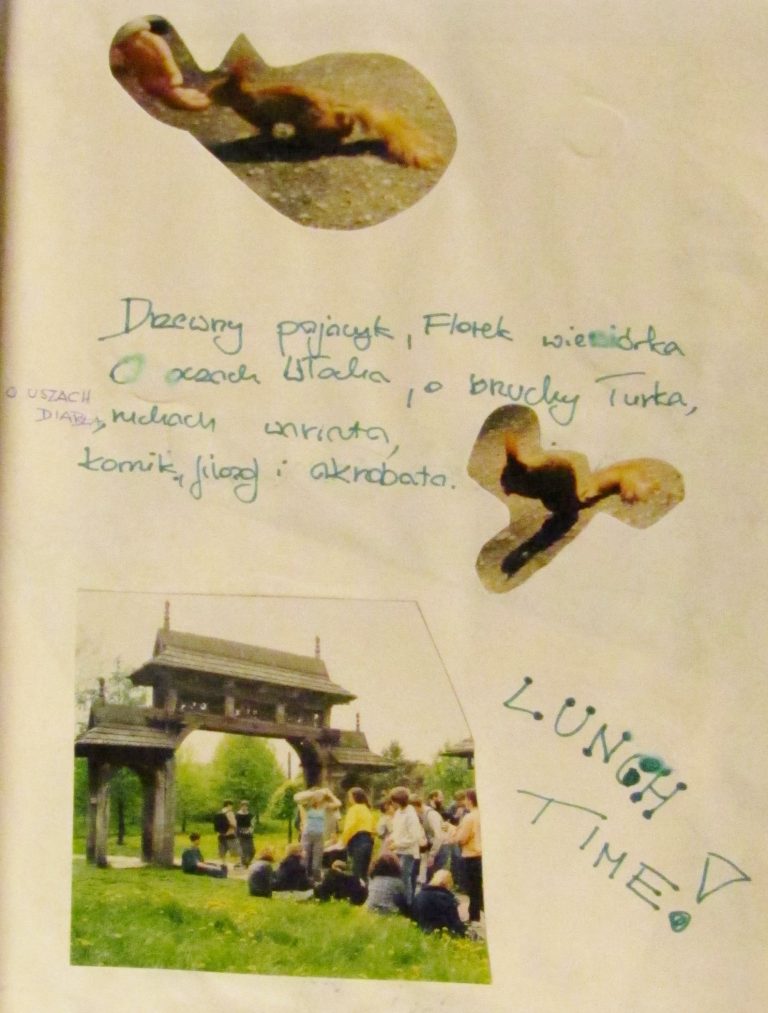 Drzewny pajacyk, Florek wiewiórka
O oczach Włocha, o brzuchu Turka,
O USZACH
DIABŁA,
ruchach wariata,
Komik, filozof i akrobata.
LUNCH
TIME!